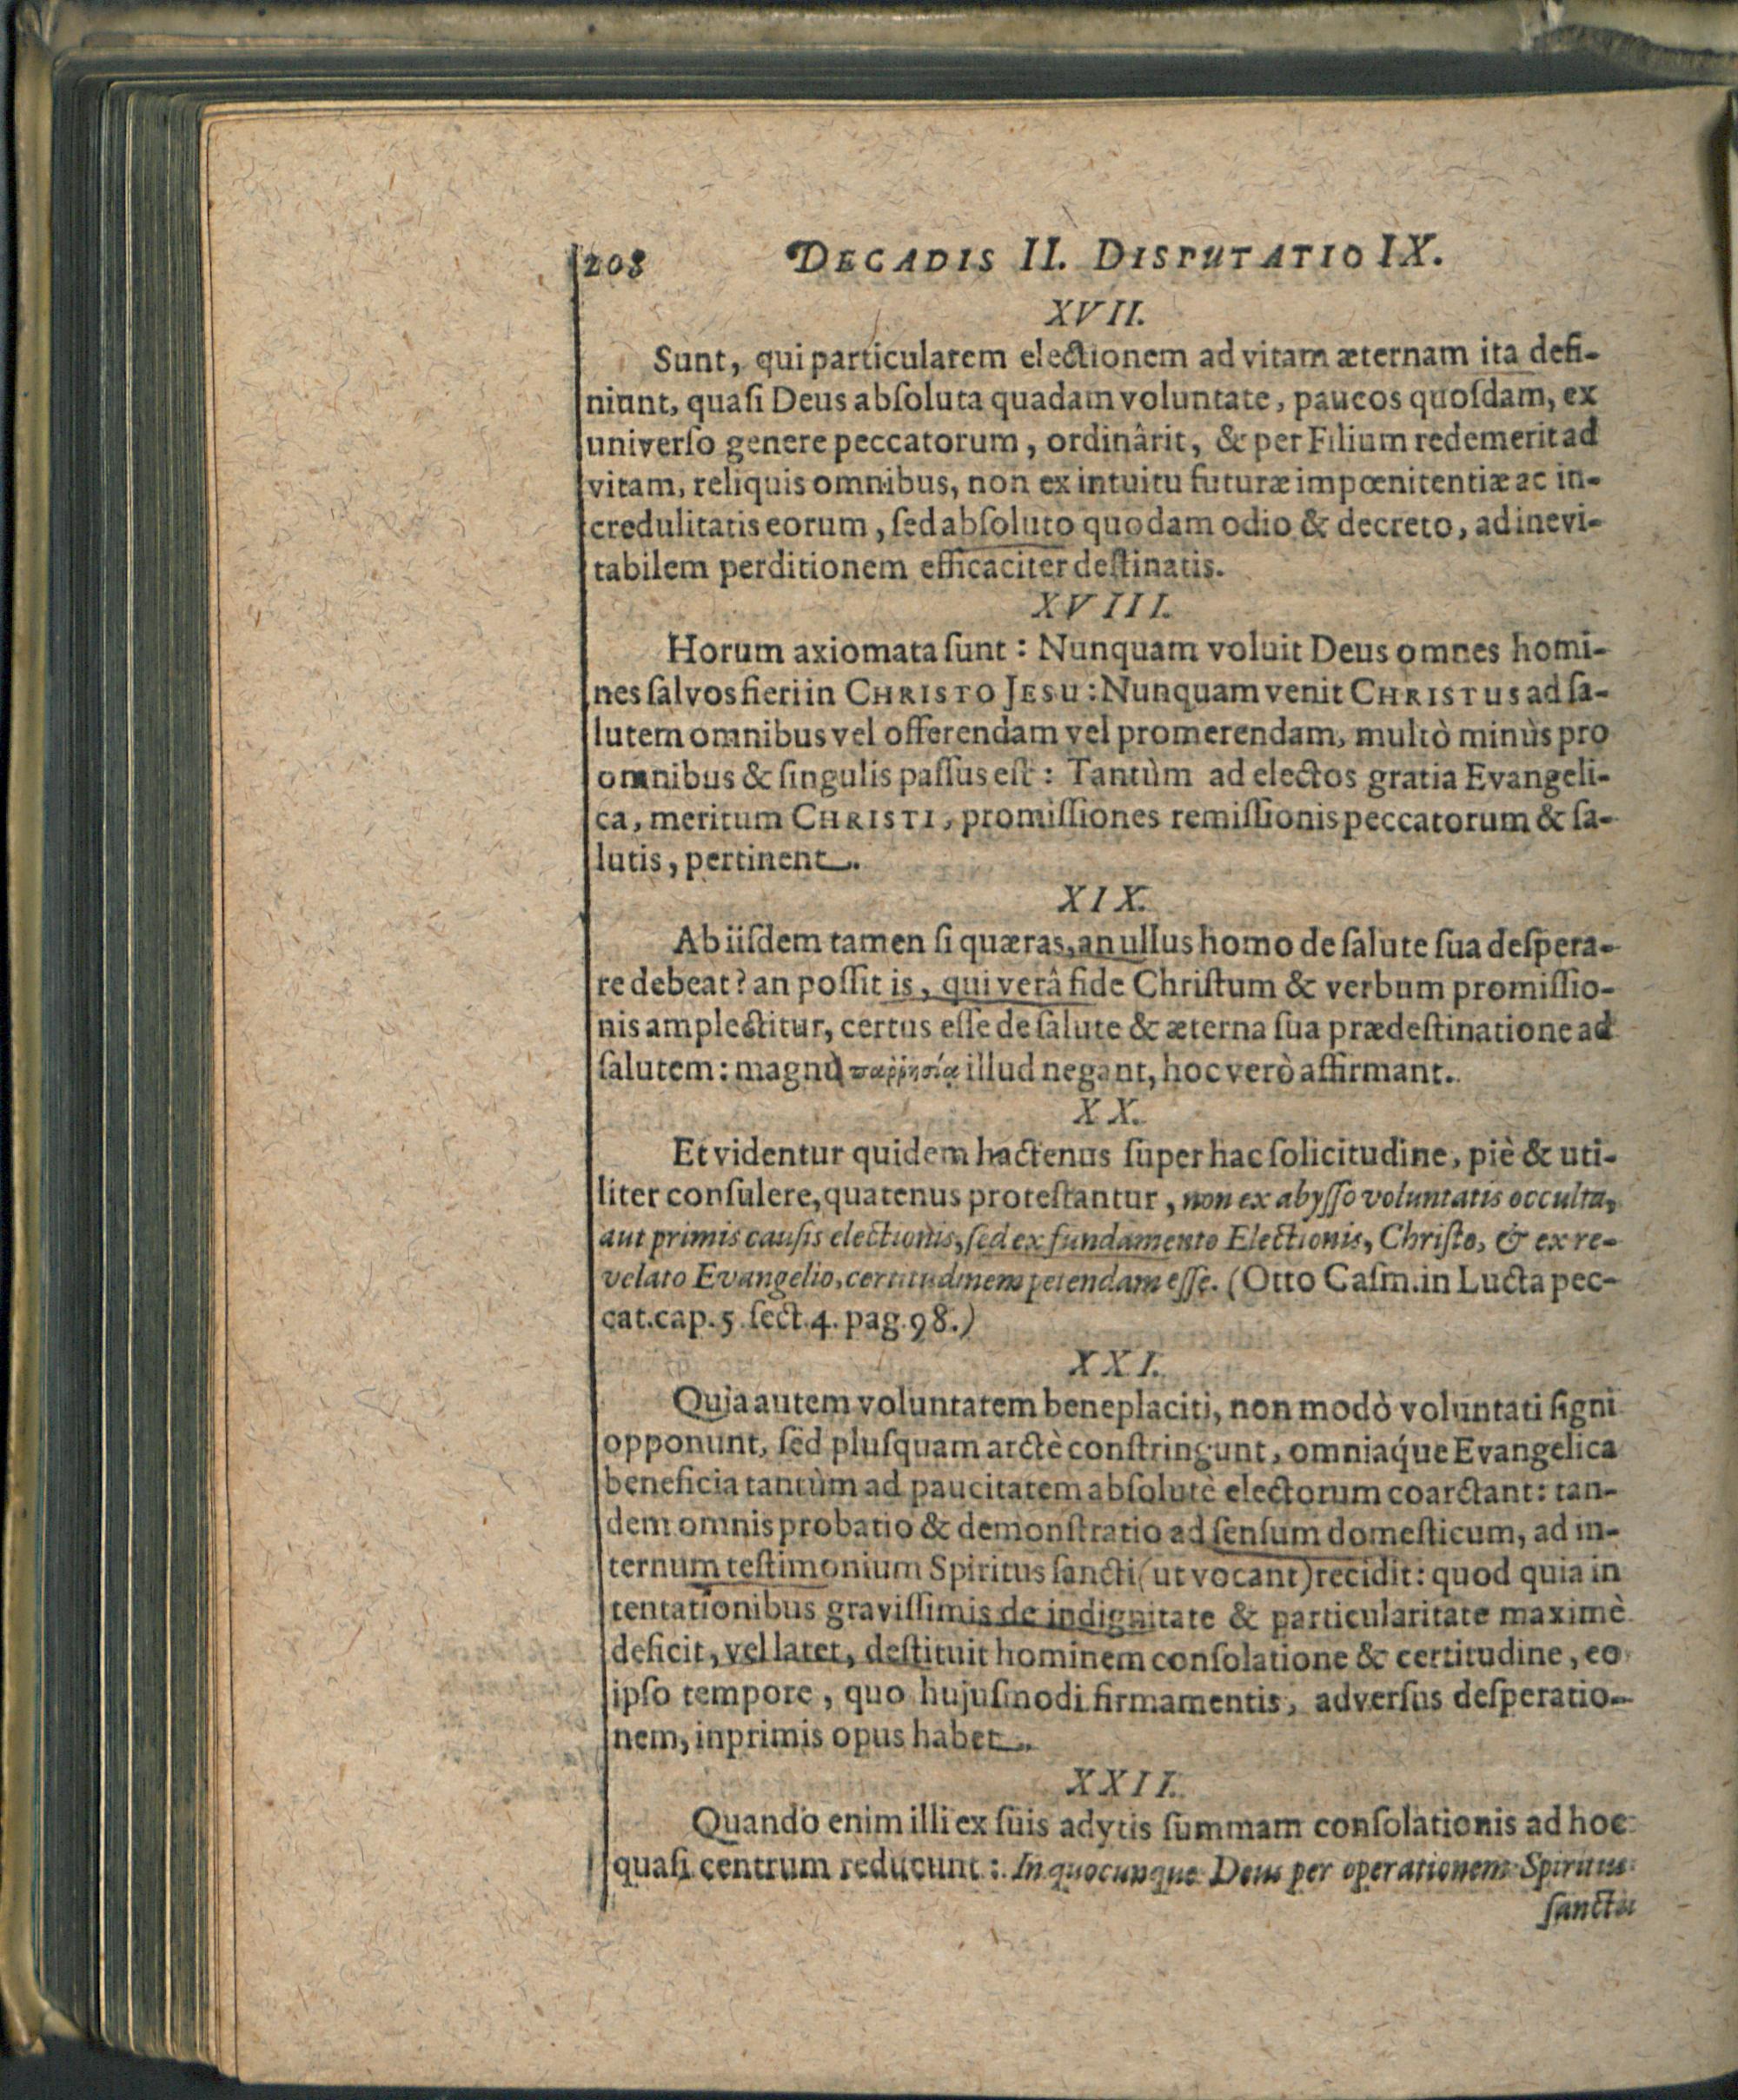 208 DECADIS II. DISPUTATIO IX.
XVII.
Sunt, qui particularem electionem ad vitam æternam ita defi-
niunt, quaſi Deus abſoluta quadam voluntate, paucos quoſdam, ex
univerſo genere peccatorum, ordinârit, & per Filium redemerit ad
vitam, reliquis omnibus, non ex intuitu futuræ impœnitentiæ ac in-
credulitatis eorum, ſed abſoluto quodam odio & decreto, ad inevi-
tabilem perditionem efficaciter deſtinatis.
XVIII.
Horum axiomata ſunt: Nunquam voluit Deus omnes homi-
nes ſalvos fieri in CHRISTO JESU: Nunquam venit CHRISTUS ad ſa-
lutem omnibus vel offerendam vel promerendam, multò minùs pro
omnibus & ſingulis paſſus eſt: Tantùm ad electos gratia Evangeli-
ca, meritum CHRISTI, promiſſiones remiſſionis peccatorum & ſa-
lutis, pertinent.
XIX.
Ab iiſdem tamen ſi quæras, an ullus homo de ſalute ſua deſpera-
re debeat? an poſſit is, qui verâ fide Chriſtum & verbum promiſſio-
nis amplectitur, certus eſſe de ſalute & æterna ſua prædeſtinatione ad
ſalutem: magnâ παῤῥησίᾳ illud negant, hoc verò affirmant.
XX.
Et videntur quidem hactenus ſuper hac ſolicitudine, piè & uti-
liter conſulere, quatenus proteſtantur, non ex abyſſo voluntatis occulta,
aut primis cauſis electionis, ſed ex fundamento Electionis, Chriſto, & ex re-
velato Evangelio, certitudinem petendam eſſe. (Otto Caſm. in Lucta pec-
cat. cap. 5. ſect. 4. pag. 98.)
XXI.
Quia autem voluntatem beneplaciti, non modò voluntati ſigni
opponunt, ſed pluſquam arctè conſtringunt, omniaq́ue Evangelica
beneficia tantùm ad paucitatem abſolutè electorum coarctant: tan-
dem omnis probatio & demonſtratio ad ſenſum domeſticum, ad in-
ternum teſtimonium Spiritus ſancti (ut vocant) recidit: quod quia in
tentationibus graviſſimis de indignitate & particularitate maximè
deficit, vel latet, deſtituit hominem conſolatione & certitudine, eo
ipſo tempore, quo hujuſmodi firmamentis, adverſus deſperatio-
nem, inprimis opus habet.
XXII.
Quando enim illi ex ſuis adytis ſummam conſolationis ad hoc
quaſi centrum reducunt: In quocunque Deus per operationem Spiritus
ſancti